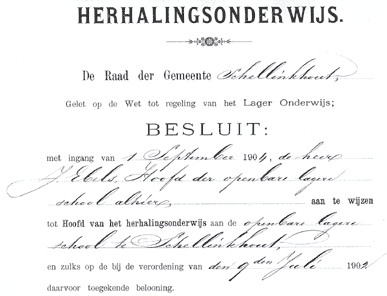 HERHALINGSONDERWIJS.
De Raad der Gemeente Schellinkhout,
Gelet op de Wet tot regeling van het Lager Onderwijs;
BESLUIT:
met ingang van 1 September 1904, de heer
J. Ebels, Hoofd der openbare lagere
school alhier, aan te wijzen
tot Hoofd van het herhalingsonderwijs aan de openbare lagere
school te Schellinkhout,
en zulks op de bij de verordening van den 9den Juli 1902
daarvoor toegekende belooning.